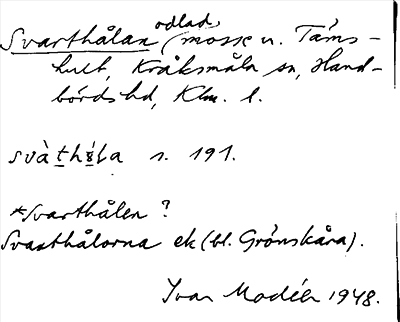 odlad
Svarthålan (mosse u. Täms-
hult, Kråksmåla sn, Hand-
börds hd, Klm. l.
svàthǻla s. 191.
*Svarthålen ?
Svarthålorna ek (bl. Grönskåra).
Ivar Modéer 1948.